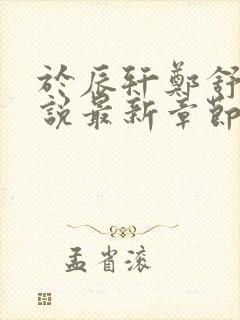 於辰轩鄭舒
說最新章節
孟省滚